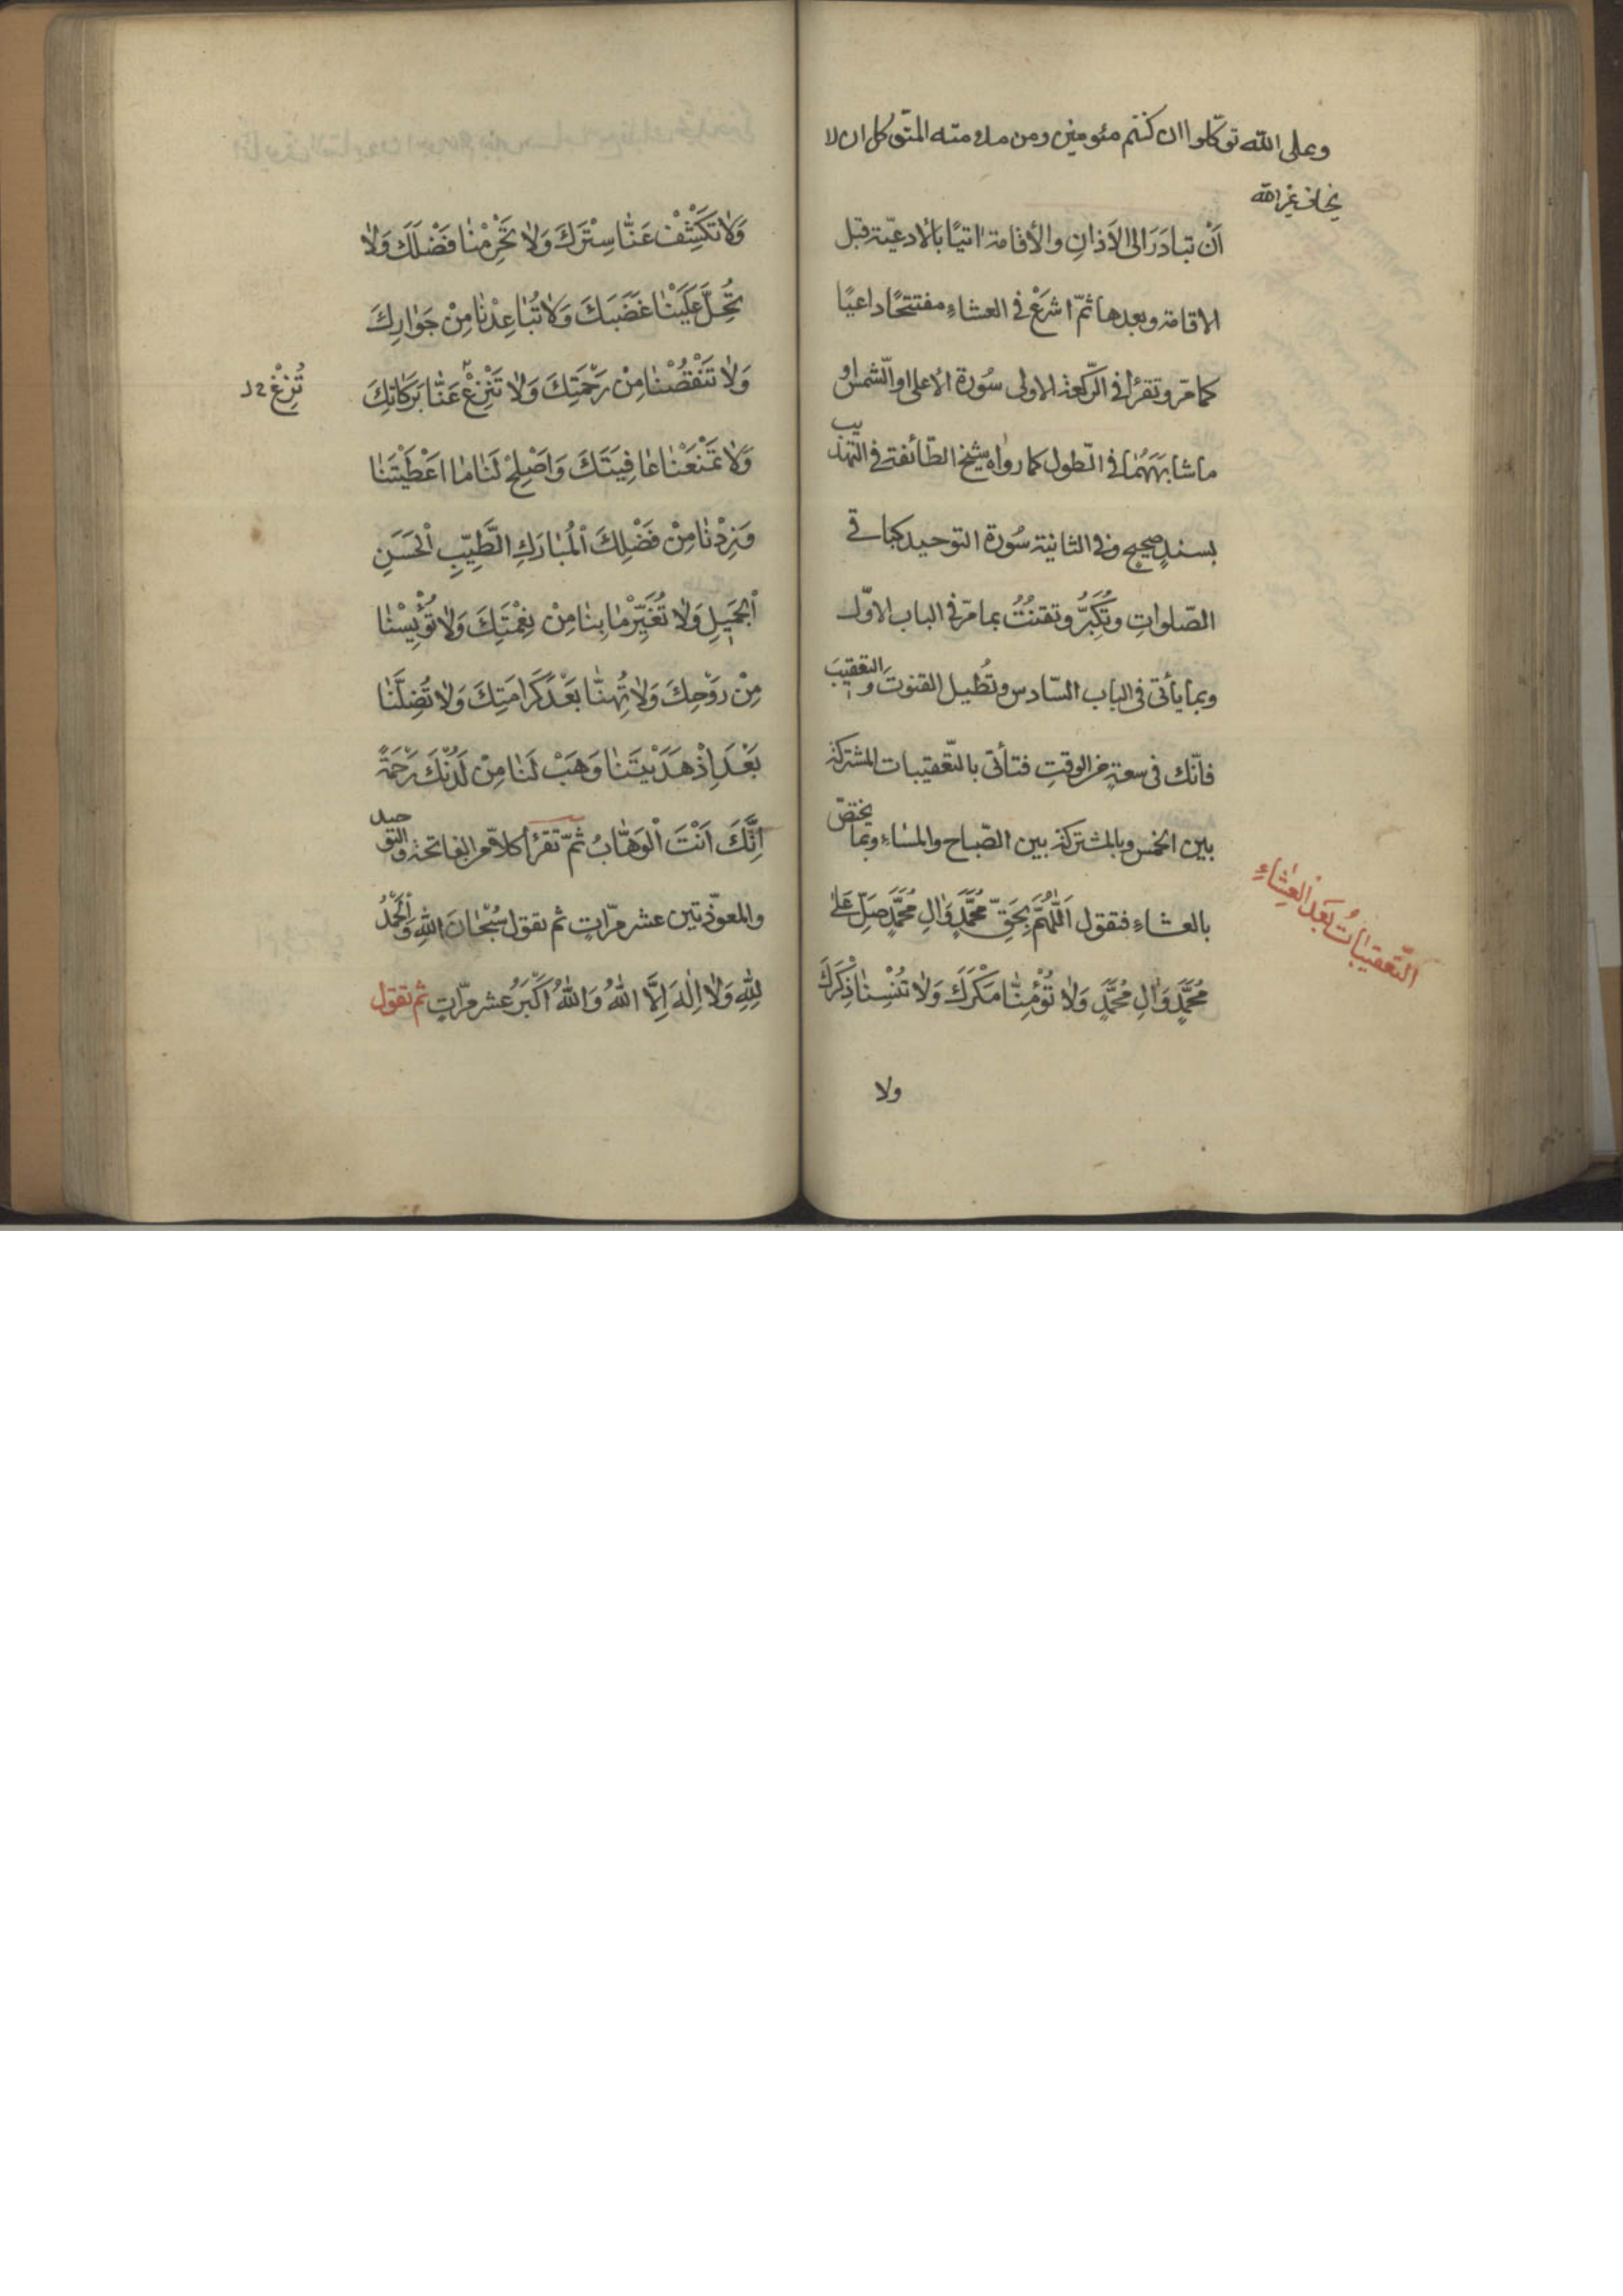 وعلى الله توكّلوا ان كنتم مئومنين ومن علامته المتوكل ان لا
يخاف غير الله
اَنْ تبادَرَ الى الاَذانِ والأقامة اتيًا بالادعيّة قبل
الاقامة وبعدها ثمّ اشرَعْ فى العشاءِ مفتتحًا داعيًا
كما مرّ وتقرأ فى الرّكعة الاولى سُورة الاعلى او الشّمس او
ما شابَهَهُما فى الطّول كما رواه شيخ الطّائفة فى التهذيب
بسندٍ صحيح وفى الثانية سُورة التوحيد كباقى
الصّلواتِ وتُكَبِّرُ وتقنُتُ بما مرّ فى الباب الاوّل
وبما يأتى فى الباب السّادس وتُطيل القنوتَ والتعقيبَ
فانّك فى سعةٍ من الوقتِ فتأتى بالتّعقيبات المشتركة
بين الخمس وبالمشتركة بين الصّباح والمسَاءِ وبما يختصّ
بالعشاءِ فتقول اَللّٰهُمَّ بِحَقِّ مُحَمَّدٍ وَاٰلِ مُحَمَّدٍ صَلِّ عَلىٰ
التّعقيبٰاتُ بَعْدَ العِشٰاءِ
مُحَمَّدٍ وَاٰلِ مُحَمَّدٍ وَلاٰ تُؤْمِنّٰا مَكْرَكَ وَلاٰ تُنْسِنٰا ذِكْرَكَ
ولا
وَلاٰ تَكْشِفْ عَنّٰا سِتْرَكَ وَلاٰ تَحْرِمْنٰا فَضْلَكَ وَلاٰ
تُحِلَّ عَلَيْنٰا غَضَبَكَ وَلاٰ تُبٰاعِدْنٰا مِنْ جَوٰارِكَ
وَلاٰ تَنْقُصْنٰا مِنْ رَحْمَتِكَ وَلاٰ تَنْزِعْ عَنّٰا بَرَكٰاتِكَ
تُزِغْ خ ل
وَلاٰ تَمْنَعْنٰا عٰافِيَتَكَ وَاَصْلِحْ لَنٰا مٰا اَعْطَيْتَنٰا
وَزِدْنٰا مِنْ فَضْلِكَ الْمُبٰارَكِ الطَّيِّبِ الْحَسَنِ
الْجَميٖلِ وَلاٰ تُغَيِّرْ مٰا بِنٰا مِنْ نِعْمَتِكَ وَلاٰ تُؤْيِسْنٰا
مِنْ رَوْحِكَ وَلاٰ تُهِنّٰا بَعْدَ كَرٰامَتِكَ وَلاٰ تُضِلَّنٰا
بَعْدَ اِذْ هَدَيْتَنٰا وَهَبْ لَنٰا مِنْ لَدُنْكَ رَحْمَةً
اِنَّكَ اَنْتَ الْوَهّٰابُ ثمّ تقرأ كلاًّ من الفاتحة والتوحيد
والمعوّذتين عشر مرّاتٍ ثم تقول سُبْحٰانَ اللّٰهِ وَالْحَمْدُ
لِلّٰهِ وَلاٰ اِلٰهَ اِلاَّ اللّٰهُ وَاللّٰهُ اَكْبَرُ عشر مرّاتٍ ثم تقول